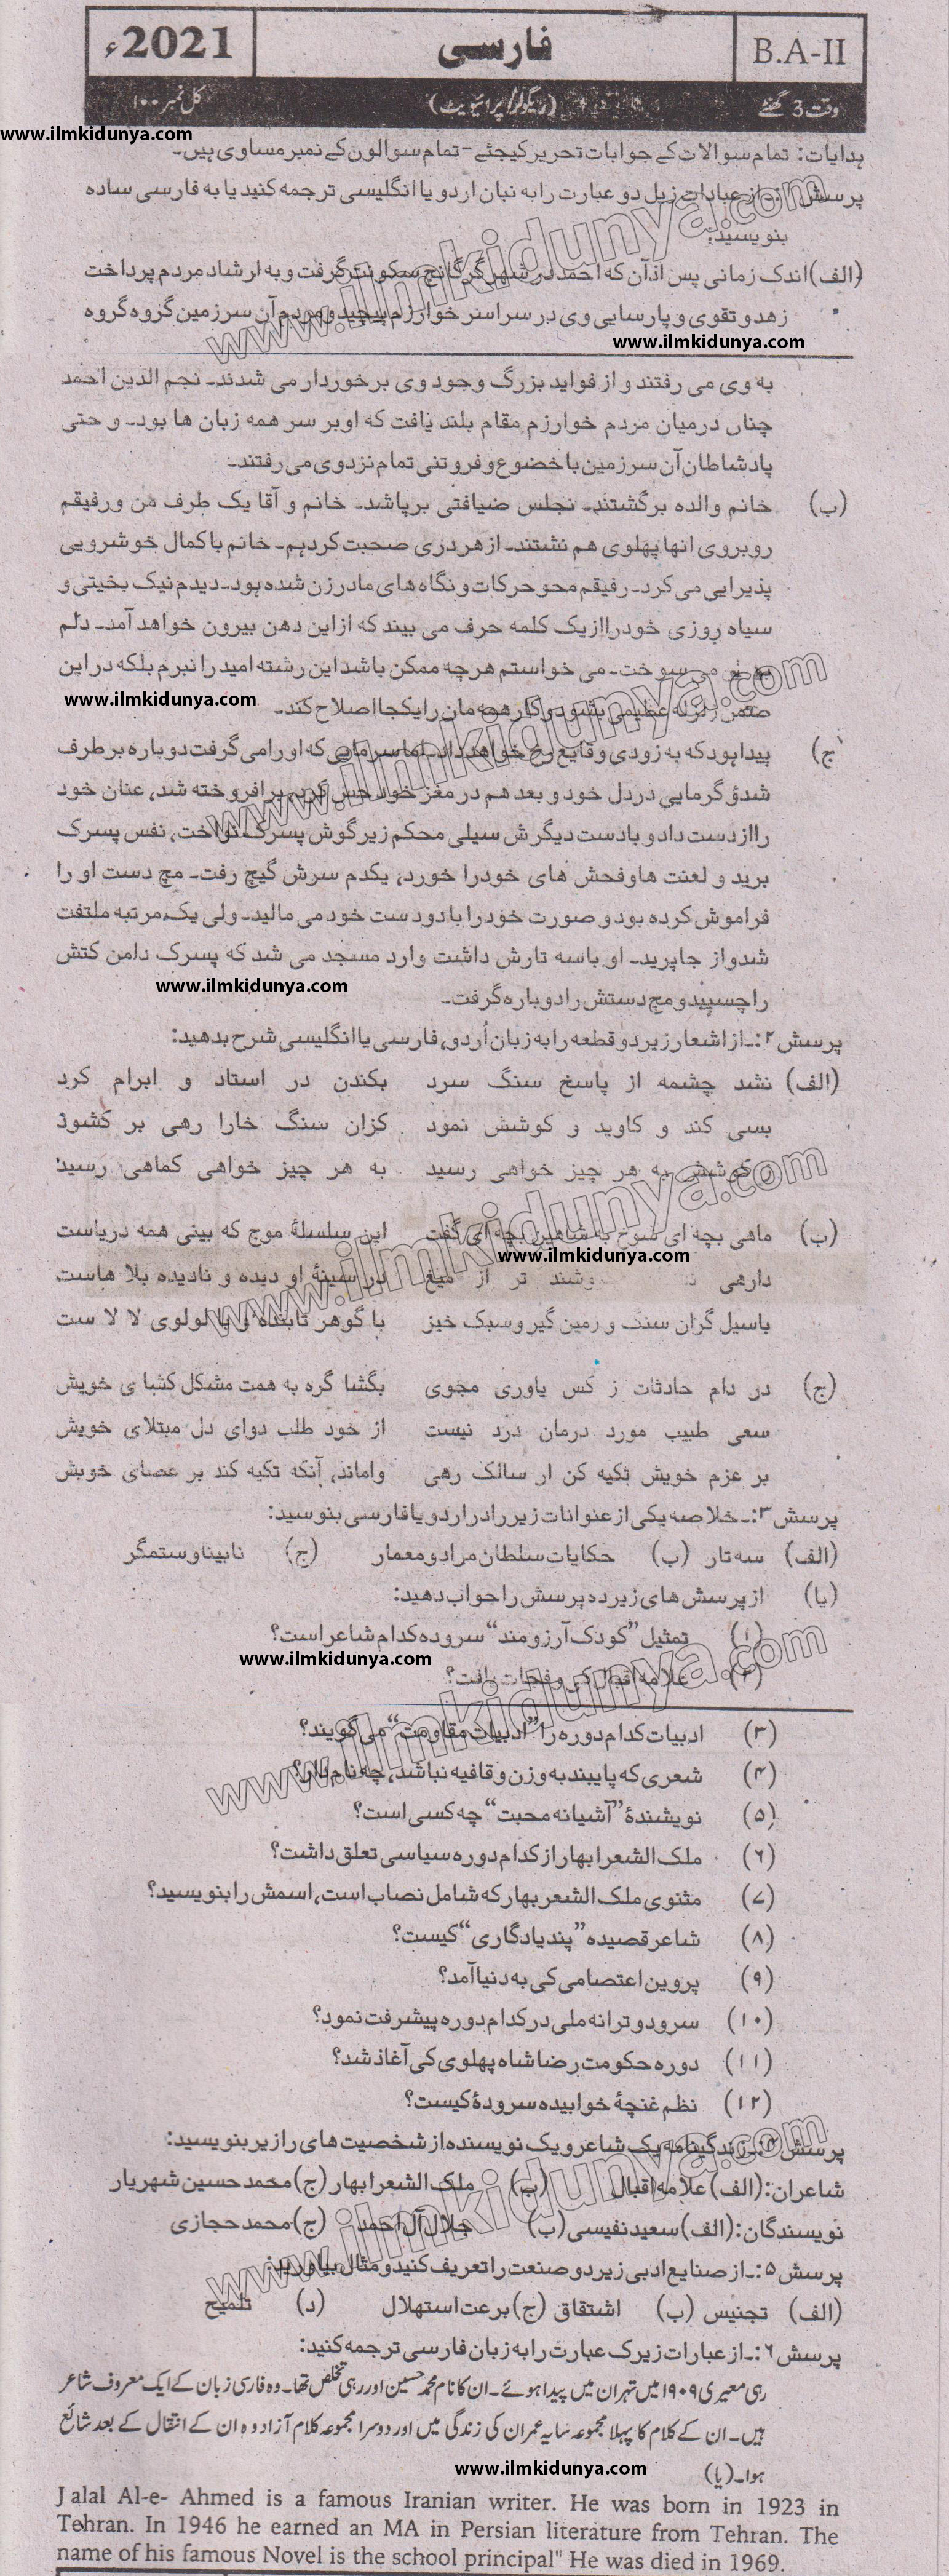 B.A-II
فارسی
2021ء
وقت 3 گھنٹے
(ریگولر/پرائیویٹ)
کل نمبر ۱۰۰
www.ilmkidunya.com
ہدایات: تمام سوالات کے جوابات تحریر کیجئے - تمام سوالوں کے نمبر مساوی ہیں۔
پرسش ۱:۔ از عبادات زیل دو عبارت را به نبان اردو یا انگلیسی ترجمه کنید یا به فارسی ساده
بنویسید:
(الف) اندک زمانی پس ازآن که احمد در شهر گرگانج سکونت گرفت و به ارشاد مردم پرداخت
زهد و تقوی و پارسایی وی در سراسر خوارزم پیچید و مردم آن سرزمین گروه گروه
www.ilmkidunya.com
به وی می رفتند و از فواید بزرگ وجود وی برخوردار می شدند۔ نجم الدین احمد
چناں درمیان مردم خوارزم مقام بلند یافت که اوبر سر همه زبان ها بود۔ و حتی
پادشاطان آن سرزمین با خضوع و فروتنی تمام نزدوی می رفتند۔
(ب) خانم والده برگشتند۔ نجلس ضیافتی برپاشد۔ خانم و آقا یک طرف من ورفیقم
روبروی انها پهلوی هم نشتند۔ از هر دری صحبت کردیم۔ خانم باکمال خوشرویی
پذیرایی می کرد۔ رفیقم محو حرکات و نگاه های مادر زن شده بود۔ دیدم نیک بخیتی و
سیاه روزی خودرا ازیک کلمه حرف می بیند که ازاین دهن بیرون خواهد آمد۔ دلم
می سوخت۔ می خواستم هرچه ممکن باشداین رشته امید را نبرم بلکه دراین
www.ilmkidunya.com
ضمن زلزله عظیمی بشود و کار همه مان را یکجا اصلاح کند۔
(ج) پیدا بود که به زودی وقایع رخ خواهد داد۔ اما سرمایی که اورا می گرفت دوباره برطرف
شدؤ گرمایی دردل خود و بعد هم در مغز خود حس کرد۔ برافروخته شد، عنان خود
را از دست داد و بادست دیگرش سیلی محکم زیر گوش پسرک نواخت، نفس پسرک
برید و لعنت ها وفحش های خودرا خورد، یکدم سرش گیچ رفت۔ مچ دست او را
فراموش کرده بود و صورت خودرا با دودست خود می مالید۔ ولی یک مرتبه ملتفت
شد و از جاپرید۔ او باسه تارش داشت وارد مسجد می شد که پسرک دامن کتش
www.ilmkidunya.com
را چسپید و مچ دستش را دوباره گرفت۔
پرسش ۲:۔ از اشعار زیر دو قطعه را به زبان اُردو، فارسی یا انگلیسی شرح بدهید:
(الف) نشد چشمه از پاسخ سنگ سرد بکندن در استاد و ابرام کرد
بسی کند و کاوید و کوشش نمود کزان سنگ خارا رهی بر کشود
زکوشش به هر چیز خواهی رسید به هر چیز خواهی کماهی رسید
(ب) ماهی بچه ای شوخ به شاهین بچه ای گفت این سلسلهٔ موج که بینی همه دریاست
www.ilmkidunya.com
دارهی وشند تر از میغ درسینهٔ او دیده و نادیده بلا هاست
باسیل گران سنگ و زمین گیر وسبک خیز با گوهر تابنده و با لولوی لا لا ست
(ج) در دام حادثات ز کس یاوری مجوی بگشا گره به همت مشکل کشا ی خویش
سعی طبیب مورد درمان درد نیست از خود طلب دوای دل مبتلای خویش
بر عزم خویش تکیه کن ار سالک رهی واماند، آنکه تکیه کند بر عصای خویش
پرسش ۳:۔ خلاصه یکی از عنوانات زیر را در اردو یا فارسی بنوسید:
(الف) سه تار (ب) حکایات سلطان مراد و معمار (ج) نابینا و ستمگر
(یا) از پرسش های زیر ده پرسش را جواب دهید:
(۱) تمثیل ”کودک آرزومند“ سروده کدام شاعر است؟
www.ilmkidunya.com
(۲) علامه اقبال کی وفات یافت؟
(۳) ادبیات کدام دوره را ”ادبیات مقاومت“ می گویند؟
(۴) شعری که پایبند به وزن و قافیه نباشد، چه نام دارد؟
(۵) نویشندهٔ ”آشیانه محبت“ چه کسی است؟
(۶) ملک الشعرا بهار از کدام دوره سیاسی تعلق داشت؟
(۷) مثنوی ملک الشعر بهار که شامل نصاب است، اسمش را بنویسید؟
(۸) شاعر قصیده ”پند یادگاری“ کیست؟
(۹) پروین اعتصامی کی به دنیا آمد؟
(۱۰) سرود و ترانه ملی در کدام دوره پیشرفت نمود؟
(۱۱) دوره حکومت رضا شاه پهلوی کی آغاز شد؟
(۱۲) نظم غنچهٔ خوابیده سرودهٔ کیست؟
پرسش ۴:۔ زندگینامه یک شاعر و یک نویسنده از شخصیت های را زیر بنویسید:
شاعران: (الف) علامه اقبال (ب) ملک الشعرا بهار (ج) محمد حسین شهریار
نویسندگان: (الف) سعید نفیسی (ب) جلال آل احمد (ج) محمد حجازی
پرسش ۵:۔ از صنایع ادبی زیر دو صنعت را تعریف کنید و مثال بیاورید:
(الف) تجنیس (ب) اشتقاق (ج) برعت استهلال (د) تلمیح
پرسش ۶:۔ از عبارات زیر ک عبارت را به زبان فارسی ترجمه کنید:
رہی معیری ۱۹۰۹ میں تہران میں پیدا ہوئے۔ ان کا نام محمد حسین اور رہی تخلص تھا۔ وہ فارسی زبان کے ایک معروف شاعر
ہیں۔ ان کے کلام کا پہلا مجموعہ سایہ عمران کی زندگی میں اور دوسرا مجموعہ کلام آزادہ ان کے انتقال کے بعد شائع
www.ilmkidunya.com
ہوا۔ (یا)
Jalal Al-e- Ahmed is a famous Iranian writer. He was born in 1923 in
Tehran. In 1946 he earned an MA in Persian literature from Tehran. The
name of his famous Novel is the school principal" He was died in 1969.